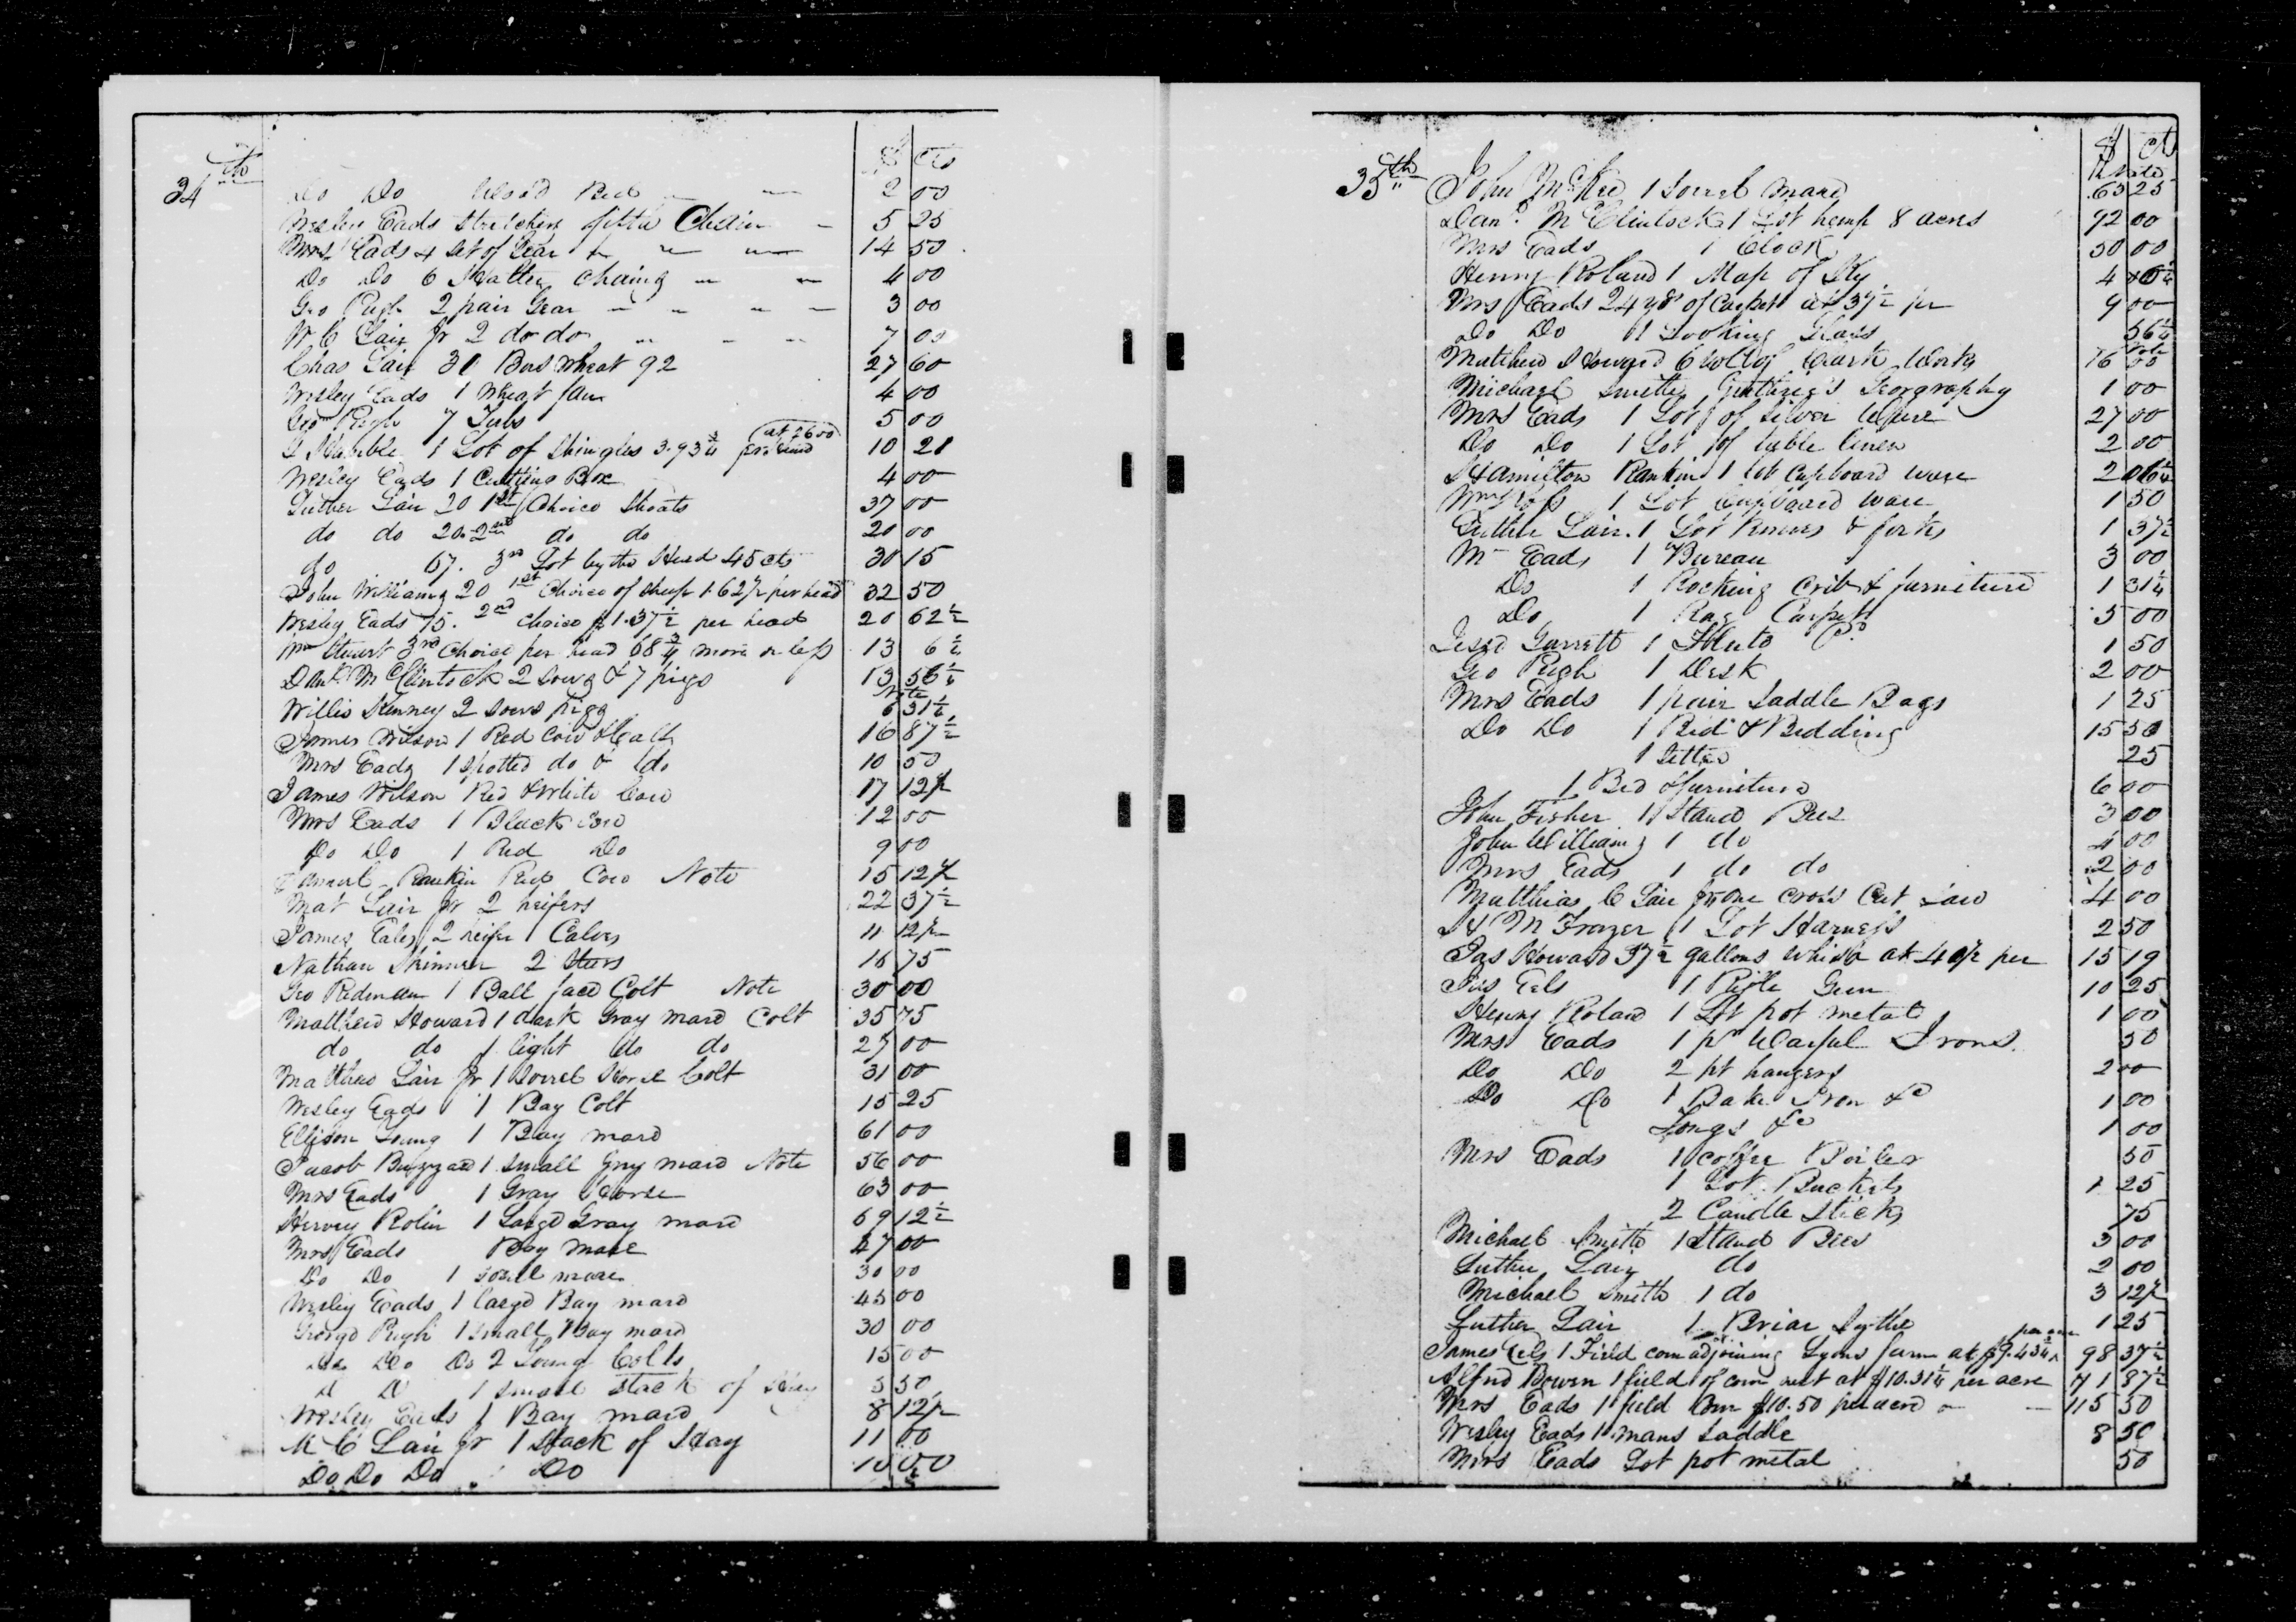 34th
$ cts
Do Do Wood Red 2 00
Wesley Eads Stretchers fifth Chain 5 25
Mrs Eads 4 Set of Gear 14 50
Do Do 6 Halter Chains 4 00
Geo Pugh 2 pair Gear 3 00
M C Lair Jr 2 do do 7 00
Chas Lair 30 Bus Wheat 92 27 60
Wesley Eads 1 Wheat fan 4 00
Geo Pugh 7 Tubs 5 00
1 Lot of Shingles 3.93¾ at 2600 10 21
Wesley Eads 1 Cutting Box 4 00
Luther Lair 20 1st Choice Shoats 37 00
do do 20 2nd do do 20 00
do 67. 3rd Lot by the Head 45 cts 30 15
John Williams 20 1st Choice of Sheep 1.62½ per head 32 50
Wesley Eads 15. 2nd Choice $1.37½ per head 20 62½
Wm Stuart 3rd Choice per head 68¾ more or less 13 6½
Danl McClintock 2 Sows & 7 pigs 13 56¼
Willis Kenney 2 Sows pigs Note 6 31¼
James Wilson 1 Red Cow & Calf 16 87½
Mrs Eads 1 Spotted do & do 10 50
James Wilson Red & White Cow 17 12½
Mrs Eads 1 Black Cow 12 00
Do Do 1 Red Do 9 00
Samuel Rankin Red Cow Note 15 12½
Mat Lair Jr 2 heifers 22 37½
James Eales 2 heifer Calves 11 12½
Nathan Skinner 2 Steers 16 75
Geo Redman 1 Ball faced Colt Note 30 00
Matthew Howard 1 dark Gray mare Colt 35 75
do do 1 light do do 25 00
Matthew Lair Jr 1 Sorrel Horse Colt 31 00
Wesley Eads 1 Bay Colt 15 25
Ellison Young 1 Bay mare 61 00
Jacob Buzzard 1 Small Gray mare Note 56 00
Mrs Eads 1 Gray Horse 63 00
Harvey Rolin 1 Large Gray mare 69 12½
Mrs Eads Bay Mare 47 00
Do Do 1 Sorrel mare 30 00
Wesley Eads 1 large Bay mare 45 00
George Pugh 1 Small Bay mare 30 00
Do Do Do 2 Young Colts 15 00
D D 1 Small Stack of Hay 5 50
Wesley Eads 1 Bay mare 8 12½
M C Lair Jr 1 Stack of Hay 11 00
Do Do Do Do 10 00
35th
$ cts
John McKee 1 Sorrel Mare Note 65 25
Danl McClintock 1 Lot hemp 8 acres 92 00
Mrs Eads 1 Clock 50 00
Henry Roland 1 Map of Ky 4
Mrs Eads 24 yds of Carpet at 37½ per 9 00
Do Do 1 Looking Glass 56¼
Matthew Howard 6 Vol of Clark Works Note 16 00
Michael Smith Guthrie's Geography 1 00
Mrs Eads 1 Lot of Silver Ware 27 00
Do Do 1 Lot of table linen 2 00
Hamilton Rankin 1 Lot Cupboard ware 2 06¼
1 Lot Cupboard Ware 1 50
Luther Lair 1 Lot Knives & forks 1 37½
Mrs Eads 1 Bureau 3 00
Do 1 Rocking Crib & furniture 1 31¼
Do 1 Rag Carpet 5 00
Jesse Garrett 1 Flute 1 50
Geo Pugh 1 Desk 2 00
Mrs Eads 1 pair Saddle Bags 1 25
Do Do 1 Bed & Bedding 15 50
1 Settee 25
1 Bed & furniture 6 00
John Fisher 1 Stand Bees 3 00
John Williams 1 do 4 00
Mrs Eads 1 do do 2 00
Matthias C Lair Jr one Cross Cut Saw 4 00
H M Frazer 1 Lot Harness 2 50
Jas Howard 37½ gallons Whisk at 40½ per 15 19
Jas Eels 1 Rifle Gun 10 25
Henry Roland 1 Lot pot metal 1 00
Mrs Eads 1 pr Wafful Irons 50
Do Do 2 pt hangers 2 00
Do Do 1 Bake Iron &c 1 00
Tongs &c 1 00
Mrs Eads 1 Coffee Boiler 50
1 Lot Buckets 1 25
2 Candle Sticks 75
Michael Smith 1 Stand Bees 3 00
Luther Lair do 2 00
Michael Smith 1 do 3 12½
Luther Lair 1 Briar Sythe 1 25
James Eels 1 Field corn adjoining Lyons farm at $9.43¾ per acre 98 37½
Alfred Bowen 1 field of corn next at $10.31¼ per acre 71 87½
Mrs Eads 1 field Corn $10.50 per acre 115 50
Wesley Eads 1 mans Saddle 8 50
Mrs Eads Lot pot metal 50